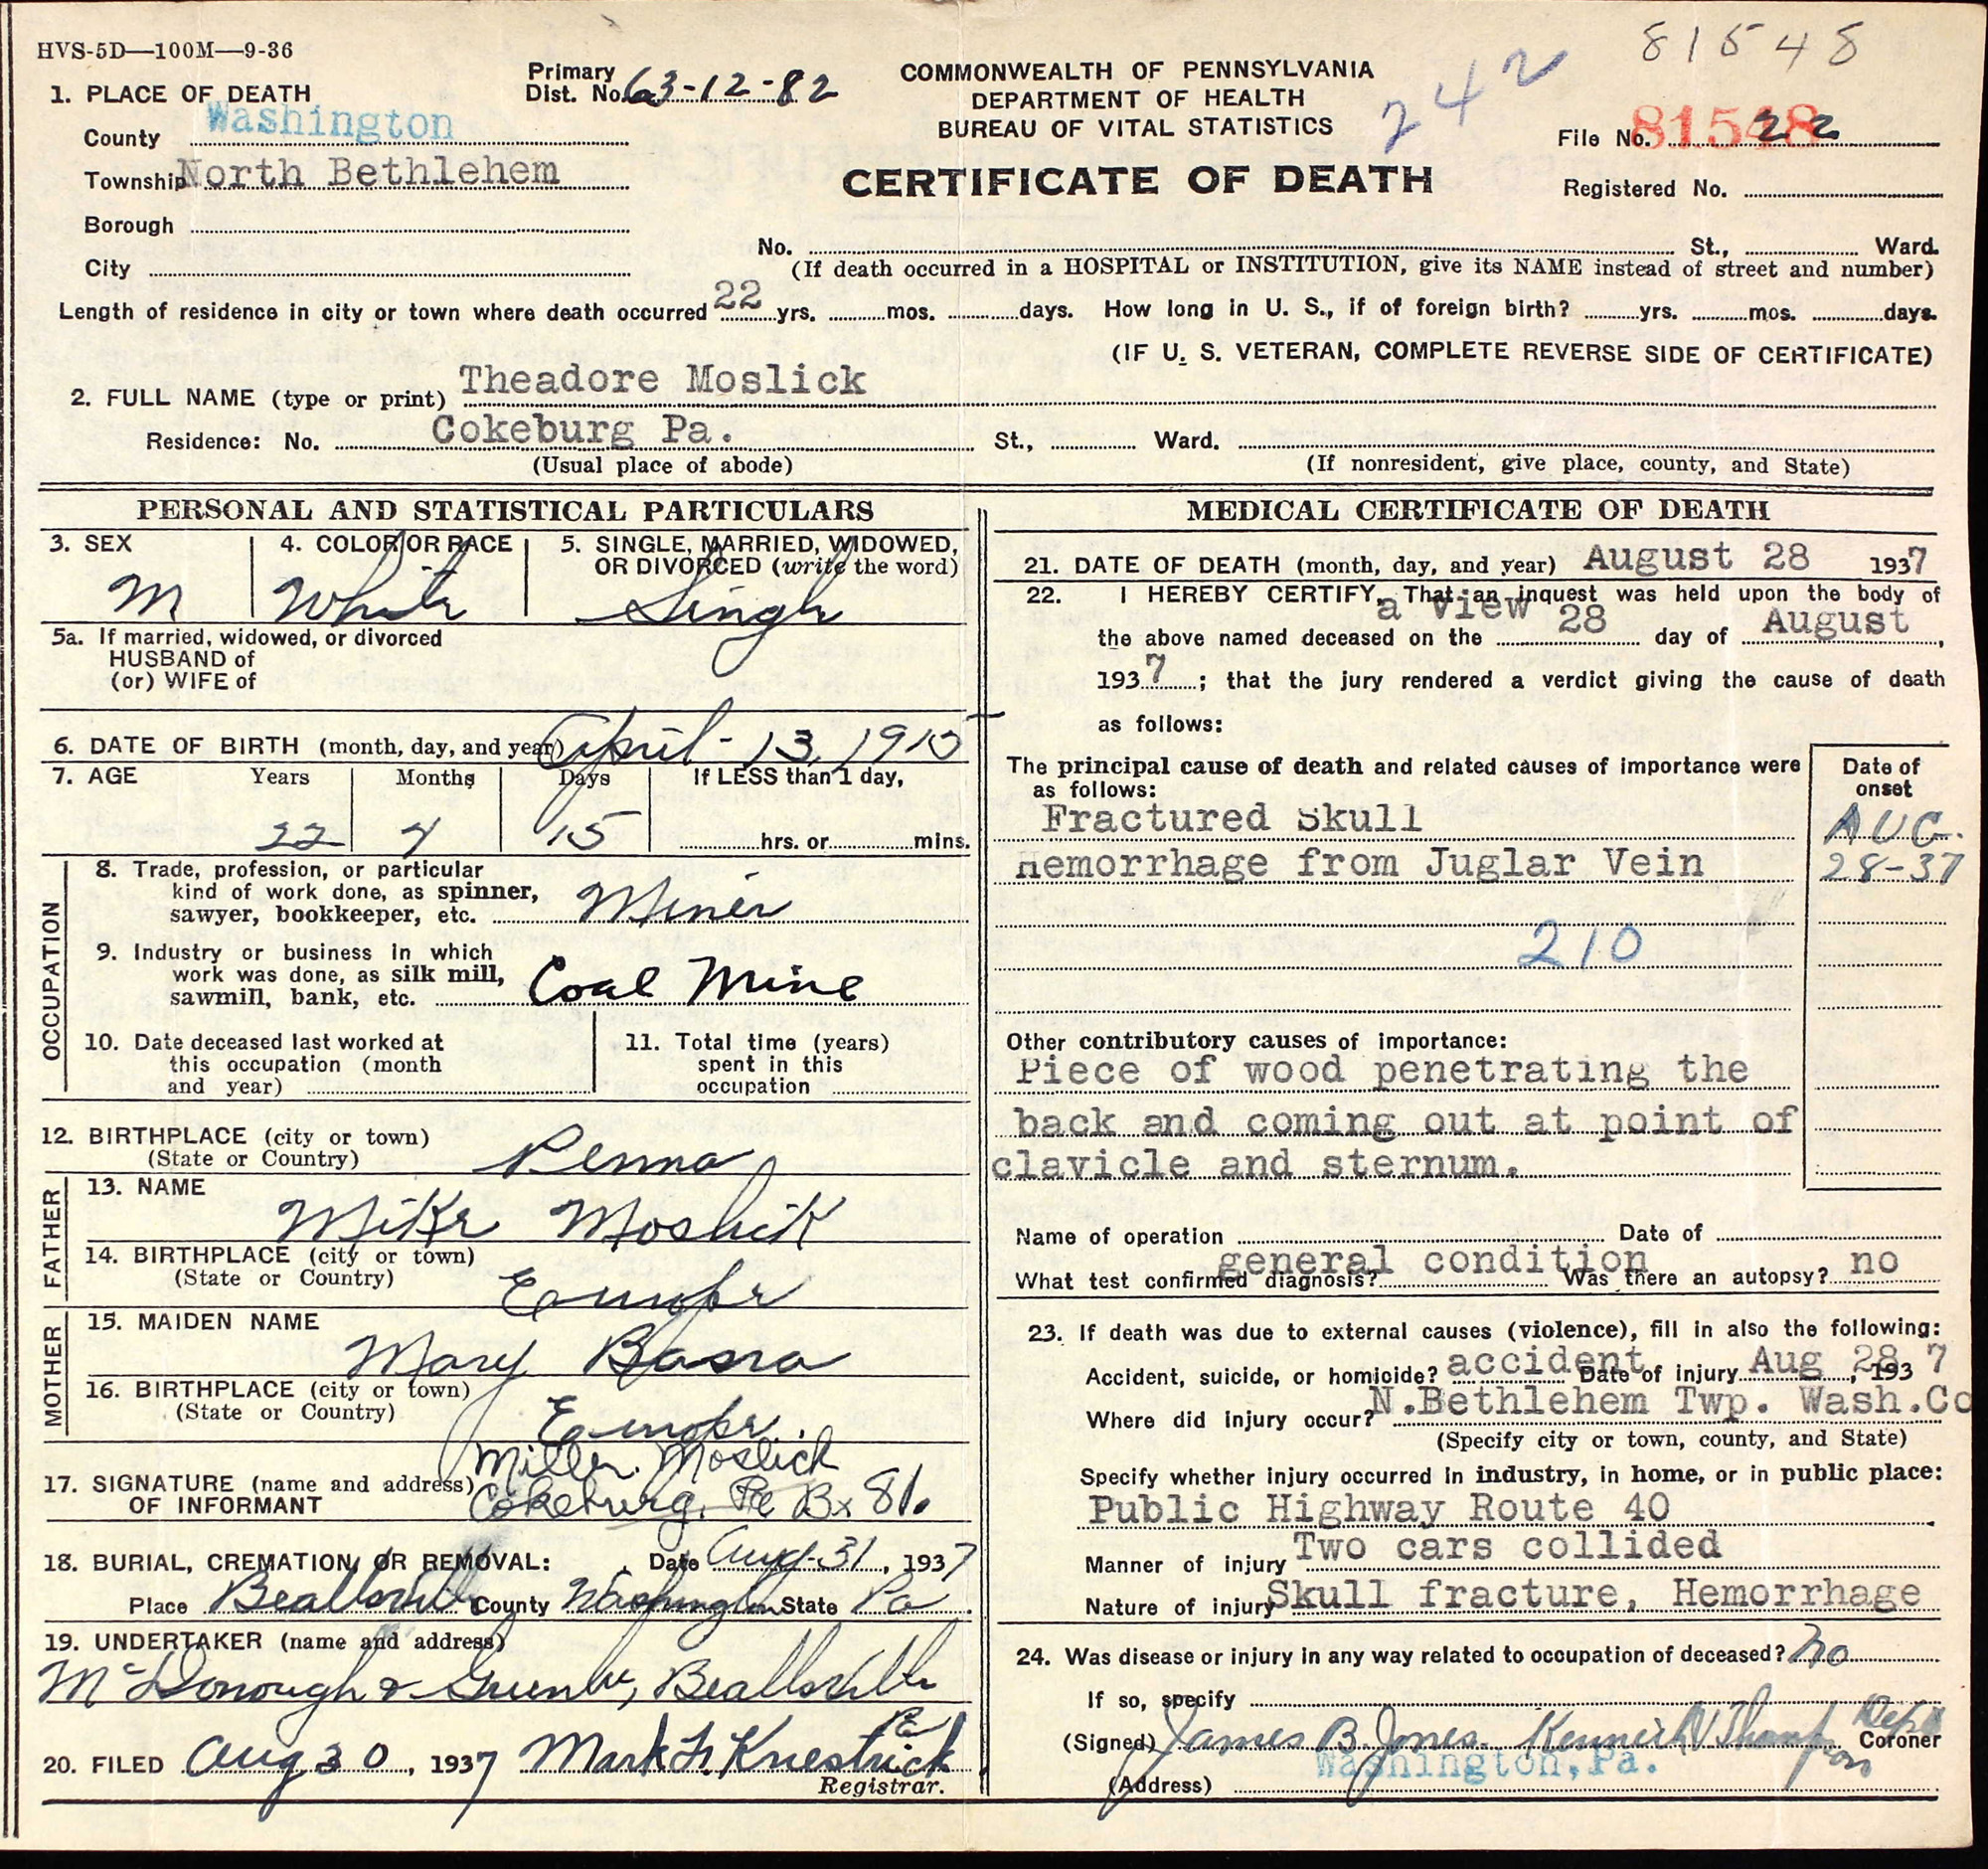 HVS-5D—100M—9-36
81548
242
1. PLACE OF DEATH
Primary Dist. No. 63-12-82
COMMONWEALTH OF PENNSYLVANIA
DEPARTMENT OF HEALTH
BUREAU OF VITAL STATISTICS
CERTIFICATE OF DEATH
File No. 81548 22
Registered No.
County Washington
Township North Bethlehem
Borough
City
No. St., Ward.
(If death occurred in a HOSPITAL or INSTITUTION, give its NAME instead of street and number)
Length of residence in city or town where death occurred 22 yrs. mos. days. How long in U. S., if of foreign birth? yrs. mos. days.
(IF U. S. VETERAN, COMPLETE REVERSE SIDE OF CERTIFICATE)
2. FULL NAME (type or print) Theadore Moslick
Residence: No. Cokeburg Pa. St., Ward.
(Usual place of abode) (If nonresident, give place, county, and State)
PERSONAL AND STATISTICAL PARTICULARS
3. SEX M
4. COLOR OR RACE White
5. SINGLE, MARRIED, WIDOWED, OR DIVORCED (write the word) Single
5a. If married, widowed, or divorced
HUSBAND of
(or) WIFE of
6. DATE OF BIRTH (month, day, and year) April - 13, 1915
7. AGE Years Months Days If LESS than 1 day,
22 4 15 hrs. or mins.
OCCUPATION
8. Trade, profession, or particular
kind of work done, as spinner,
sawyer, bookkeeper, etc. Miner
9. Industry or business in which
work was done, as silk mill,
sawmill, bank, etc. Coal Mine
10. Date deceased last worked at
this occupation (month
and year)
11. Total time (years)
spent in this
occupation
12. BIRTHPLACE (city or town)
(State or Country) Penna
FATHER
13. NAME Mike Moslick
14. BIRTHPLACE (city or town)
(State or Country) Europe
MOTHER
15. MAIDEN NAME Mary Basra
16. BIRTHPLACE (city or town)
(State or Country) Europe
17. SIGNATURE (name and address)
OF INFORMANT Miller Moslick
Cokeburg, Pa Bx 81.
18. BURIAL, CREMATION, OR REMOVAL: Date Aug-31, 1937
Place Beallsville County Washington State Pa
19. UNDERTAKER (name and address)
McDonough & Beallsville
Pa
20. FILED Aug 30, 1937 Mark H. Knestrick
Registrar.
MEDICAL CERTIFICATE OF DEATH
21. DATE OF DEATH (month, day, and year) August 28 1937
22. I HEREBY CERTIFY, That an inquest was held upon the body of
a view
the above named deceased on the 28 day of August,
1937; that the jury rendered a verdict giving the cause of death
as follows:
The principal cause of death and related causes of importance were
as follows:
Date of onset
Fractured Skull AUG.
Hemorrhage from Juglar Vein 28-37
210
Other contributory causes of importance:
Piece of wood penetrating the
back and coming out at point of
clavicle and sternum.
Name of operation Date of
What test confirmed diagnosis? general condition Was there an autopsy? no
23. If death was due to external causes (violence), fill in also the following:
Accident, suicide, or homicide? accident Date of injury Aug 28, 1937
Where did injury occur? N.Bethlehem Twp. Wash.Co
(Specify city or town, county, and State)
Specify whether injury occurred in industry, in home, or in public place:
Public Highway Route 40
Manner of injury Two cars collided
Nature of injury Skull fracture, Hemorrhage
24. Was disease or injury in any way related to occupation of deceased? no
If so, specify
(Signed) James B. Jones. Kenneth V Thompson Dept Coroner
(Address) Washington, Pa.